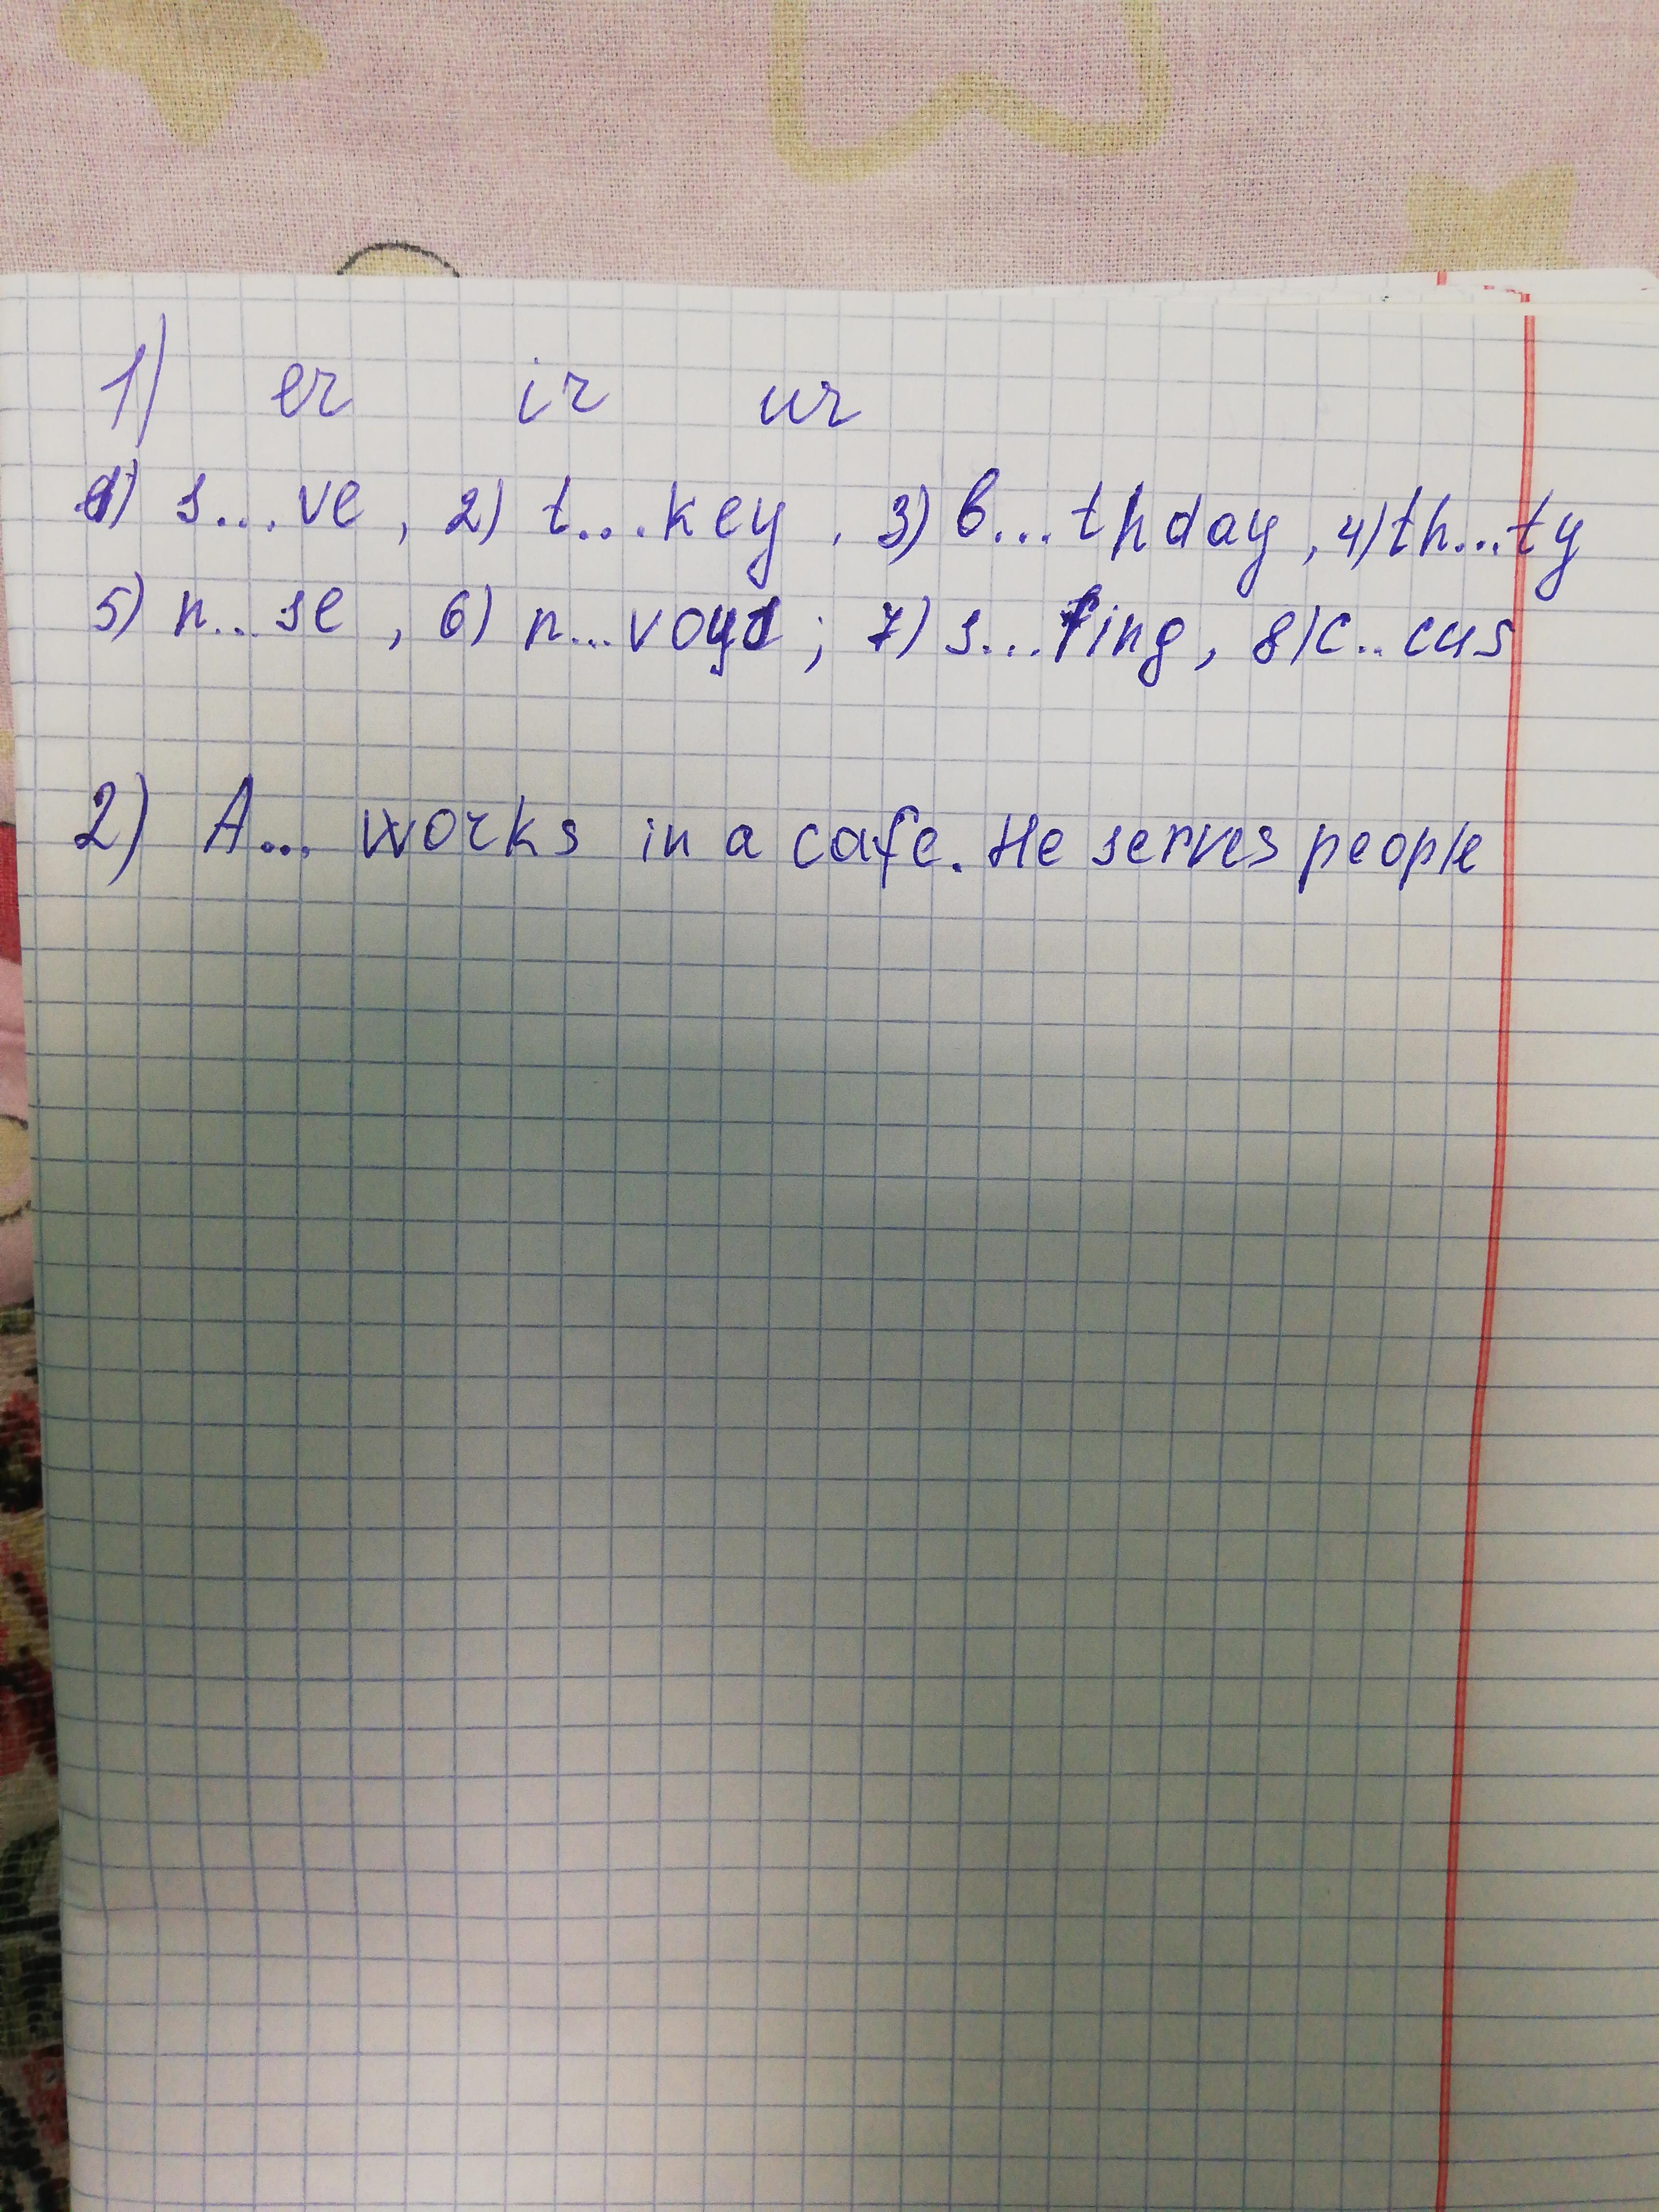 1) er ir ur
1) s...ve, 2) t....key, 3) b...thday, 4) th...ty
5) n...se, 6) n...vous; 7) s...fing, 8) c..cus
2) A... works in a cafe. He serves people